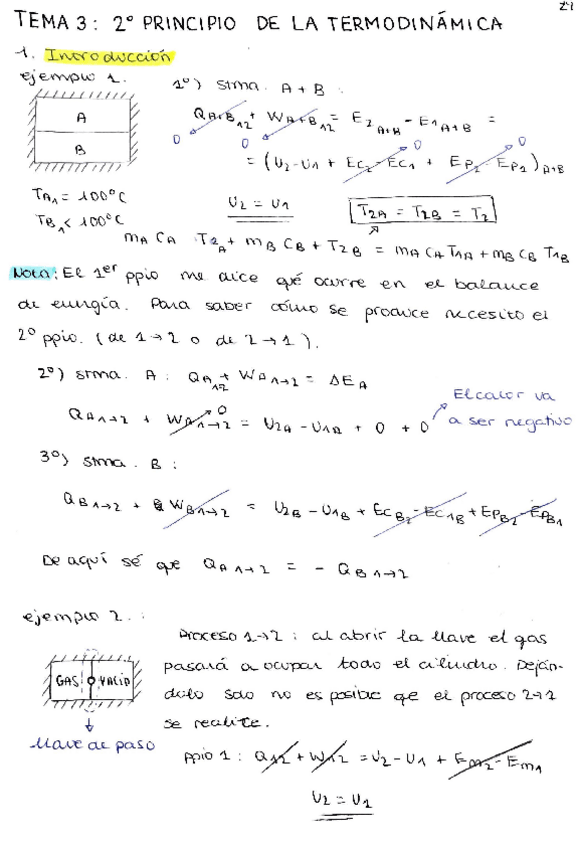 TEMA 3: 2º PRINCIPIO DE LA TERMODINÁMICA
1. Introducción
ejemplo 1.
1º) stma. A + B :
A
B
Q_{A+B 12} + W_{A+B 12} = E_{2 A+B} - E_{1 A+B} =
0 0
= (U_2 - U_1 + Ec_2 - Ec_1 + Ep_2 - Ep_1)_{A+B}
0 0
T_{A1} = 100°C
T_{B1} < 100°C
U_2 = U_1
T_{2A} = T_{2B} = T_2
m_A C_A · T_{2A} + m_B C_B + T_{2B} = m_A C_A T_{1A} + m_B C_B T_{1B}
Nota: El 1er ppio me dice qué ocurre en el balance
de energía. Para saber cómo se produce necesito el
2º ppio. (de 1→2 o de 2→1).
2º) stma. A : Q_{A 12} + W_{A 1→2} = ΔE_A
Q_{A 1→2} + W_{A 1→2} = U_{2A} - U_{1A} + 0 + 0
0
El calor va
a ser negativo
3º) stma. B :
Q_{B 1→2} + W_{B 1→2} = U_{2B} - U_{1B} + Ec_{B2} - Ec_{1B} + Ep_{B2} - Ep_{B1}
De aquí sé que Q_{A 1→2} = - Q_{B 1→2}
ejemplo 2. :
Proceso 1→2 : al abrir la llave el gas
pasará a ocupar todo el cilindro. Deján-
dolo solo no es posible que el proceso 2→1
se realice.
GAS VACÍO
llave de paso
ppio 1 : Q_{12} + W_{12} = U_2 - U_1 + E_{m2} - E_{m1}
U_2 = U_1